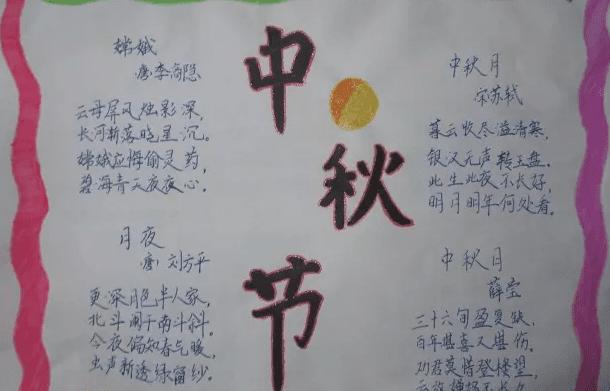 中秋节
嫦娥
唐李商隐
云母屏风烛影深，
长河渐落晓星沉。
嫦娥应悔偷灵药，
碧海青天夜夜心。
月夜
唐刘方平
更深月色半人家，
北斗阑干南斗斜。
今夜偏知春气暖，
虫声新透绿窗纱。
中秋月
宋苏轼
暮云收尽溢清寒，
银汉无声转玉盘。
此生此夜不长好，
明月明年何处看。
中秋月
薛莹
三十六旬盈复缺，
百年堪喜又堪伤。
劝君莫惜登楼望，